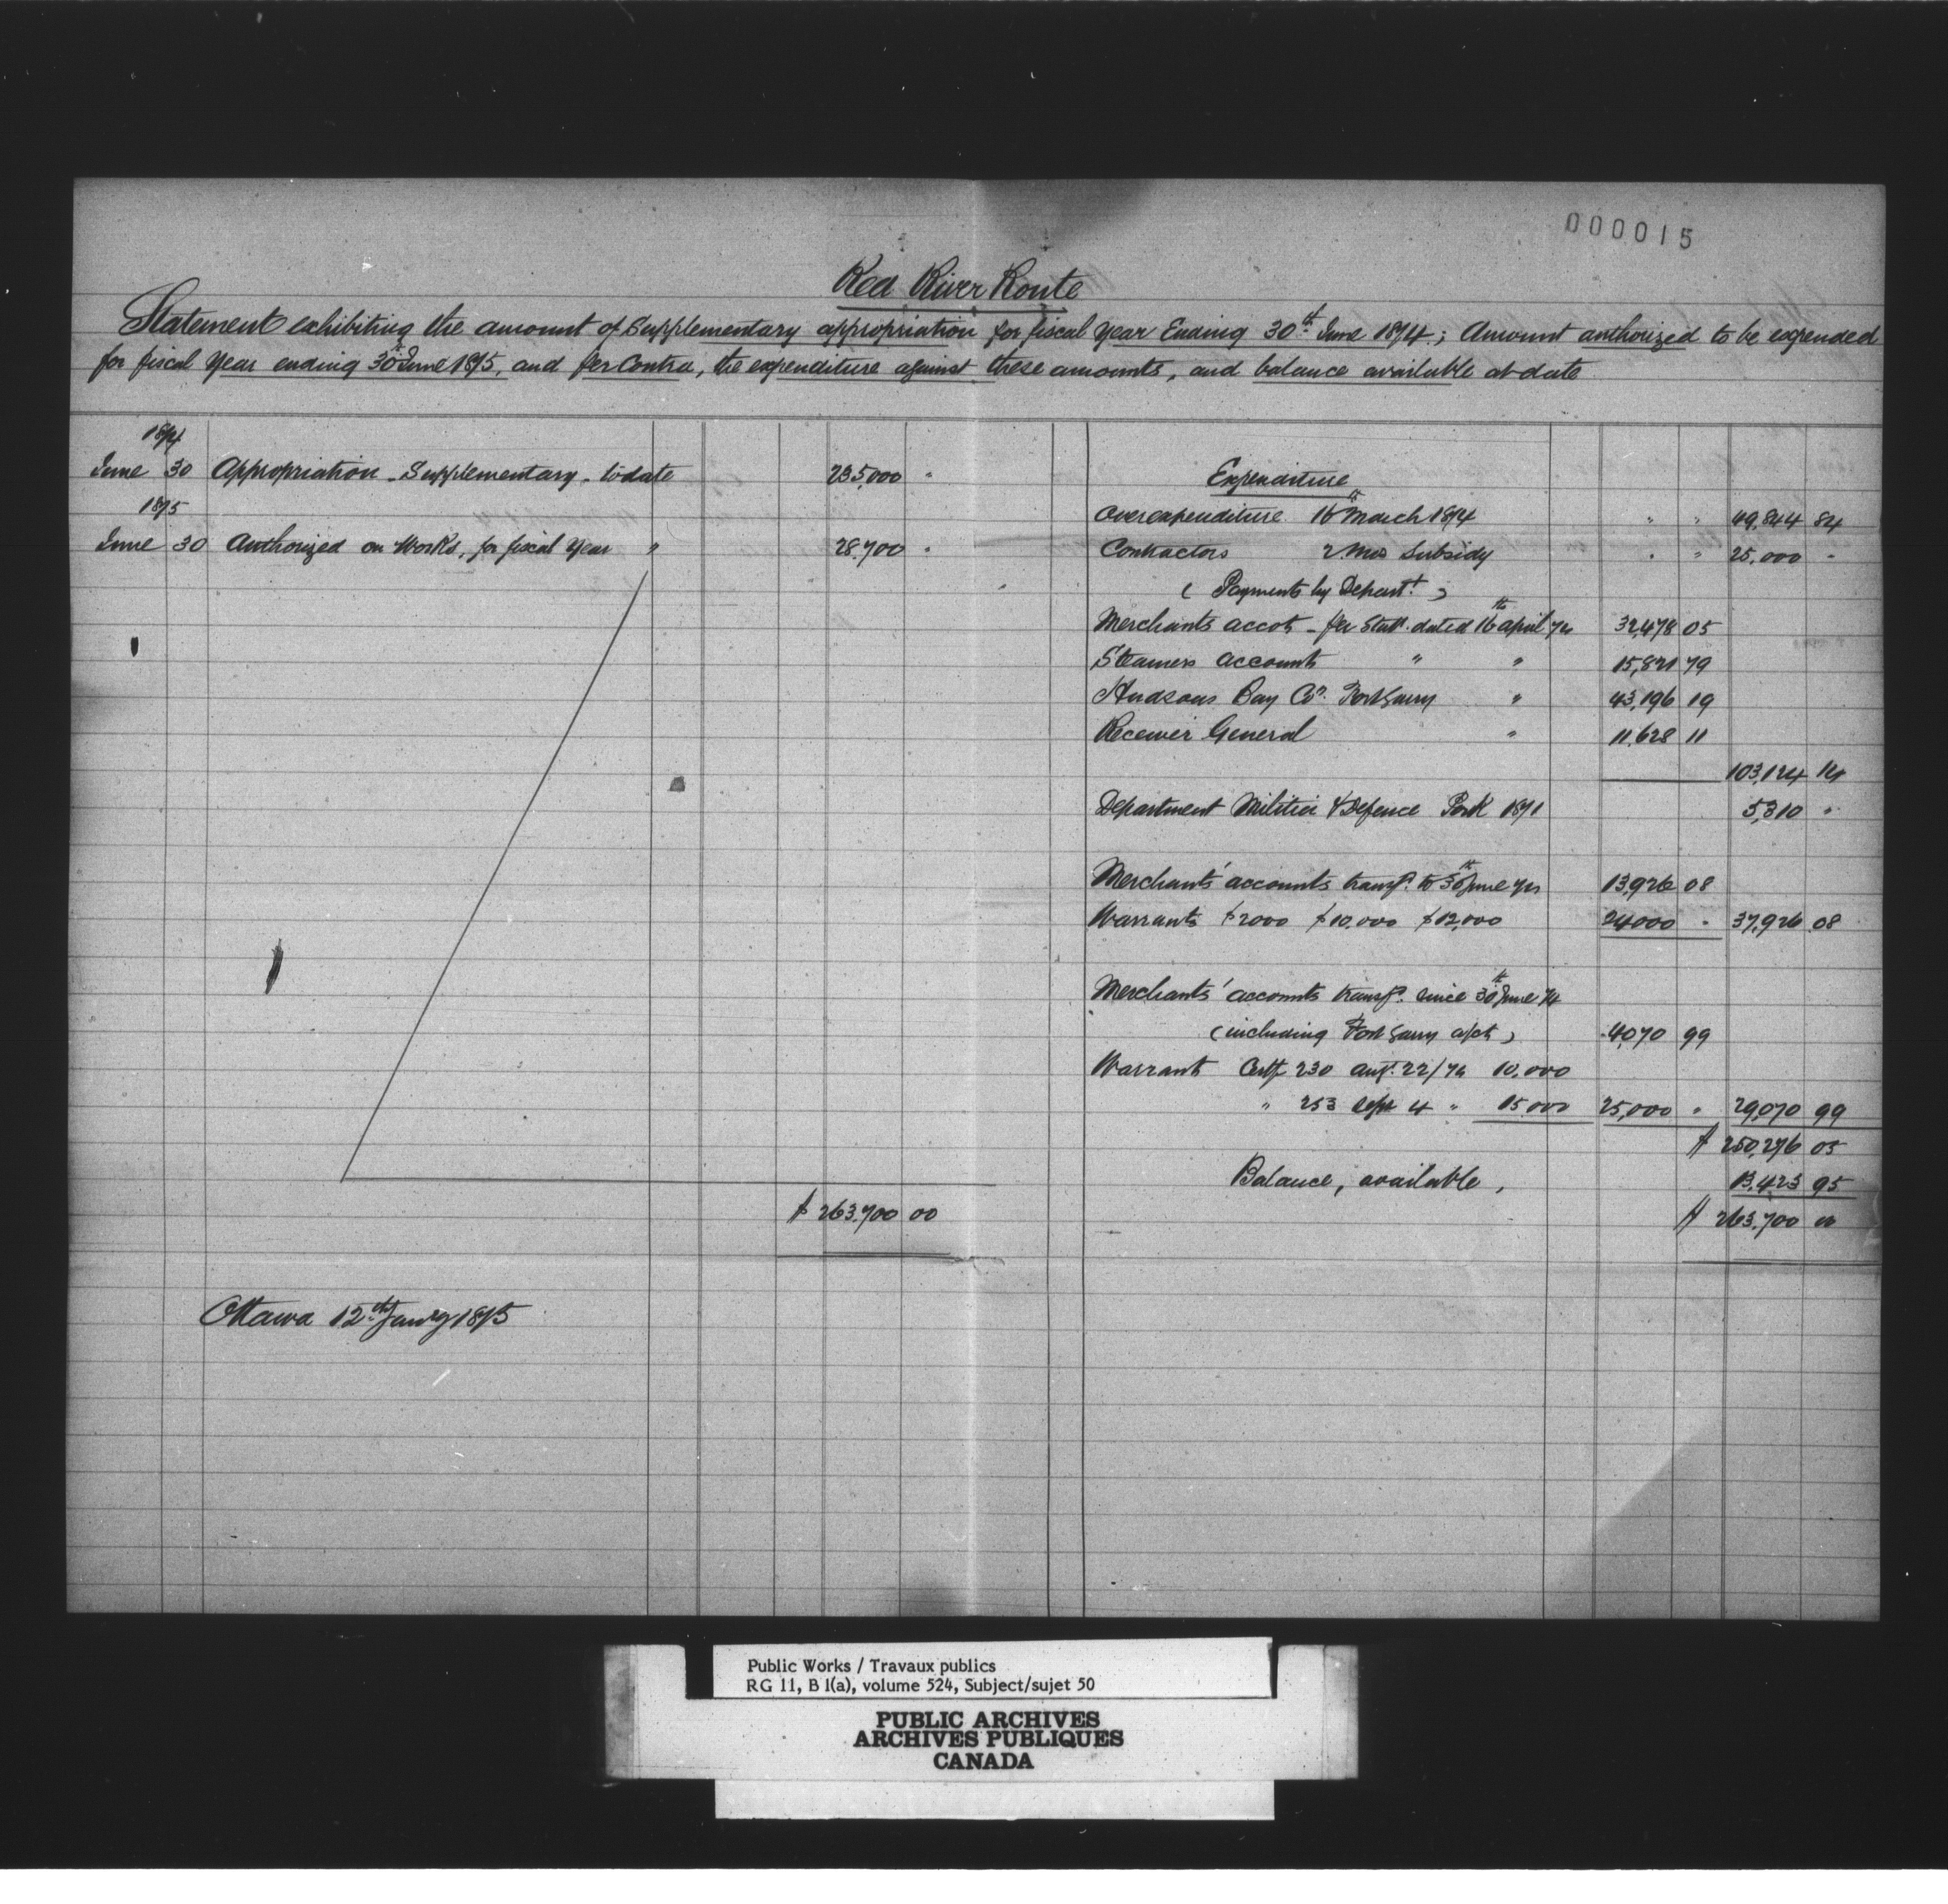 000015
Red River Route
Statement exhibiting the amount of Supplementary appropriation for fiscal year Ending 30th June 1874; Amount authorized to be expended
for fiscal year ending 30th June 1875, and per Contra, the expenditure against these amounts, and balance available at date
1874
June 30 Appropriation - Supplementary - to date 235,000 "
1875
June 30 Authorized on Works, for fiscal year " 28,700 "
$ 263,700 00
Ottawa 12th Jan'ry 1875
Expenditure
Overexpenditure 16th March 1874 " " 49,844 84
Contractors 2 Mos Subsidy " " 25,000 -
( Payments by Depart.t )
Merchants accots - per Statt. dated 16th april 74 32,478 05
Steamers accounts " " 15,821 79
Hudsons Bay Co. Fort Garry " 43,196 19
Receiver General " 11,628 11
103,124 14
Department Militia & Defence Pork 1871 5,310 "
Merchants' accounts transf.d to 30th June 74 13,926 08
Warrants $2000 $10,000 $12,000 24000 - 37,926 08
Merchants' accounts transf.d since 30th June 74
(including Fort Garry a/ct) 4,070 99
Warrant Certf 230 aug.t 22/74 10,000
" 253 Sept 4 " 15000 25,000 " 29,070 99
$ 250,276 05
Balance, available, 13,423 95
$ 263,700 00
Public Works / Travaux publics
RG 11, B 1(a), volume 524, Subject/sujet 50
PUBLIC ARCHIVES
ARCHIVES PUBLIQUES
CANADA